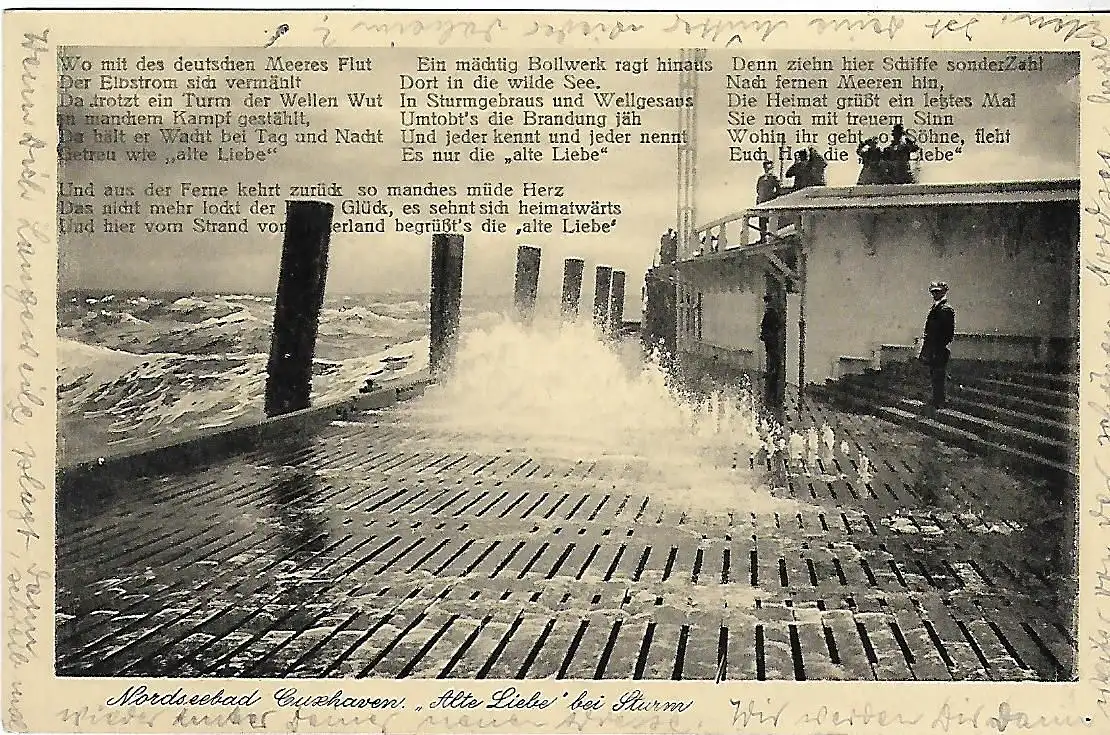 Wo mit des deutschen Meeres Flut
Der Elbstrom sich vermählt
Da trotzt ein Turm der Wellen Wut
In manchem Kampf gestählt,
Da hält er Wacht bei Tag und Nacht
Getreu wie „alte Liebe“
Ein mächtig Bollwerk ragt hinaus
Dort in die wilde See.
In Sturmgebraus und Wellgesaus
Umtobt's die Brandung jäh
Und jeder kennt und jeder nennt
Es nur die „alte Liebe“
Denn ziehn hier Schiffe sonder Zahl
Nach fernen Meeren hin,
Die Heimat grüßt ein letztes Mal
Sie noch mit treuem Sinn
Wohin ihr geht Söhne, fleht
Euch die Liebe“
Und aus der Ferne kehrt zurück so manches müde Herz
Das nicht mehr lockt der Glück, es sehnt sich heimatwärts
Und hier vom Strand begrüßt's die „alte Liebe“
Nordseebad Cuxhaven. „Alte Liebe“ bei Sturm
Wenn Dich Langeweile plagt, dann schreib uns
wieder unter Deiner neuen Adresse. Wir werden Dir dann
ist Deine Mutter wieder daheim?